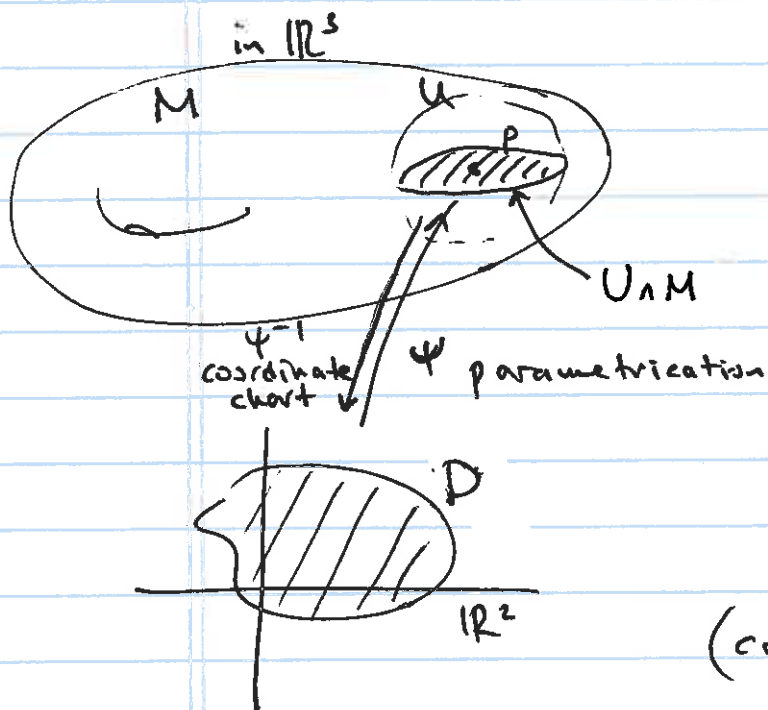 in ℝ³
M
U
p
U∩M
ψ⁻¹
coordinate
chart
ψ
parametrication
D
ℝ²
(